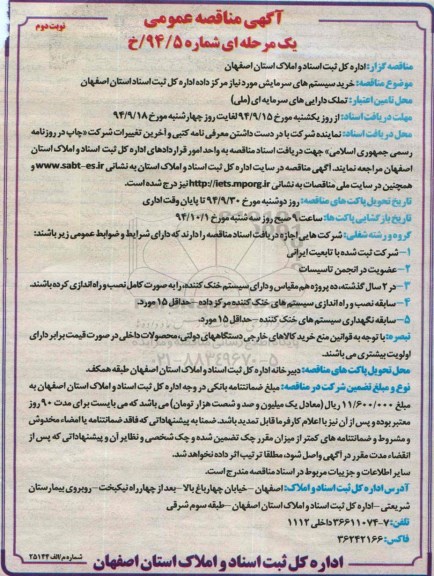 آگهی مناقصه عمومی
نوبت دوم
یک مرحله ای شماره ۹۴/۵/خ
مناقصه گزار: اداره کل ثبت اسناد و املاک استان اصفهان
موضوع مناقصه: خرید سیستم های سرمایش مورد نیاز مرکز داده اداره کل ثبت اسناد استان اصفهان
محل تامین اعتبار: تملک دارایی های سرمایه ای (ملی)
مهلت دریافت اسناد: از روز یکشنبه مورخ ۹۴/۹/۱۵ لغایت روز چهارشنبه مورخ ۹۴/۹/۱۸
محل دریافت اسناد: نماینده شرکت با در دست داشتن معرفی نامه کتبی و آخرین تغییرات شرکت «چاپ در روزنامه
رسمی جمهوری اسلامی» جهت دریافت اسناد مناقصه به واحد امور قراردادهای اداره کل ثبت اسناد و املاک استان
اصفهان مراجعه نمایند. آگهی مناقصه در سایت اداره کل ثبت اسناد و املاک استان به نشانی www.sabt-es.ir و
همچنین در سایت ملی مناقصات به نشانی http://iets.mporg.ir نیز درج شده است.
تاریخ تحویل پاکت های مناقصه: روز دوشنبه مورخ ۹۴/۹/۳۰ تا پایان وقت اداری
تاریخ بازگشایی پاکت ها: ساعت ۹ صبح روز سه شنبه مورخ ۹۴/۱۰/۱
گروه و رشته شغلی: شرکت هایی اجازه دریافت اسناد مناقصه را دارند که دارای شرایط و ضوابط عمومی زیر باشند:
۱- شرکت ثبت شده با تابعیت ایرانی
۲- عضویت در انجمن تاسیسات
۳- در ۲ سال گذشته، ده پروژه هم مقیاس و دارای سیستم خنک کننده، را به صورت کامل نصب و راه اندازی کرده باشند.
۴- سابقه نصب و راه اندازی سیستم های خنک کننده مرکز داده - حداقل ۱۵ مورد.
۵- سابقه نگهداری سیستم های خنک کننده - حداقل ۱۵ مورد.
تبصره: با توجه به قوانین منع خرید کالاهای خارجی دستگاههای دولتی، محصولات داخلی در صورت قیمت برابر دارای
اولویت بیشتری می باشند.
۰۲۱-۸۸۳۴۹۶۷۰-۵
محل تحویل پاکت های مناقصه: دبیرخانه اداره کل ثبت اسناد و املاک استان اصفهان طبقه همکف.
نوع و مبلغ تضمین شرکت در مناقصه: مبلغ ضمانتنامه بانکی در وجه اداره کل ثبت اسناد و املاک استان اصفهان به
مبلغ ۱۱/۶۰۰/۰۰۰ ریال (معادل یک میلیون و صد و شصت هزار تومان) می باشد که می بایست برای مدت ۹۰ روز
معتبر بوده و پس از آن نیز با اعلام کارفرما قابل تمدید باشد. ضمنا به پیشنهاداتی که فاقد ضمانتنامه یا امضاء مخدوش
و مشروط و ضمانتنامه های کمتر از میزان مقرر چک تضمین شده و چک شخصی و نظایر آن و پیشنهاداتی که پس از
انقضاء مدت مقرر در آگهی واصل شود، مطلقا ترتیب اثر داده نخواهد شد.
سایر اطلاعات و جزییات مربوط در اسناد مناقصه مندرج است.
آدرس اداره کل ثبت اسناد و املاک: اصفهان - خیابان چهارباغ بالا - بعد از چهارراه نیکبخت - روبروی بیمارستان
شریعتی - اداره کل ثبت اسناد و املاک استان اصفهان - طبقه سوم شرقی
تلفن: ۷-۳۶۶۱۱۰۷۴ داخلی ۱۱۱۲
فاکس: ۳۶۲۴۲۱۶۶
شماره م/الف ۲۵۱۴۴
اداره کل ثبت اسناد و املاک استان اصفهان